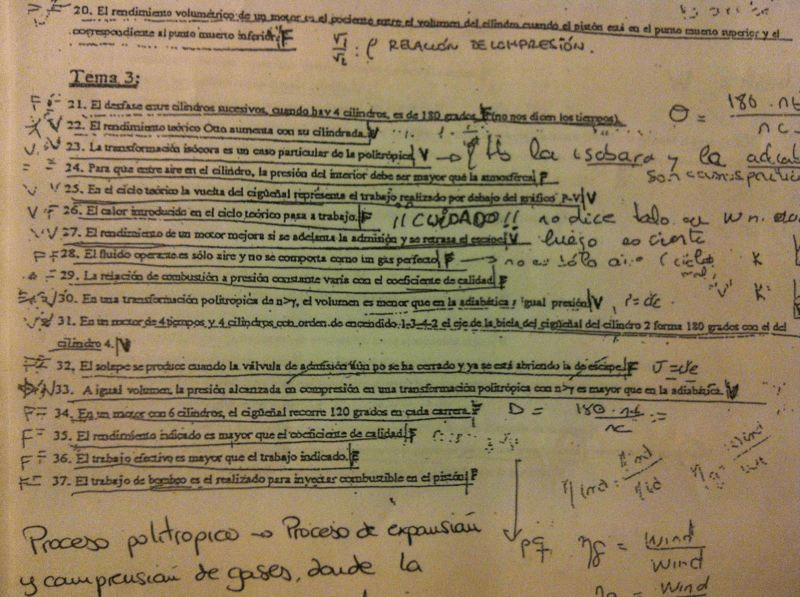 20. El rendimiento volumétrico de un motor es el cociente entre el volumen del cilindro cuando el pistón está en el punto muerto superior y el
correspondiente al punto muerto inferior. F V1 V2 : ρ RELACIÓN DE COMPRESIÓN.
Tema 3:
F 21. El desfase entre cilindros sucesivos, cuando hay 4 cilindros, es de 180 grados. F (no nos dicen los tiempos).
V 22. El rendimiento teórico Otto aumenta con su cilindrada. V
V 23. La transformación isócora es un caso particular de la politrópica. V la isobara y la
24. Para que entre aire en el cilindro, la presión del interior debe ser mayor que la atmosférica. F son casos
V V 25. En el ciclo teórico la vuelta del cigüeñal representa el trabajo realizado por debajo del gráfico P-V V
V F 26. El calor introducido en el ciclo teórico pasa a trabajo. F ¡¡CUIDADO!! no dice
V V 27. El rendimiento de un motor mejora si se adelanta la admisión y se retrasa el escape. V luego es cierto
F F 28. El fluido operante es sólo aire y no se comporta como un gas perfecto. F no es sólo aire (ciclo
F 29. La relación de combustión a presión constante varía con el coeficiente de calidad. F
30. En una transformación politrópica de n>γ, el volumen es menor que en la adiabática a igual presión. V
V 31. En un motor de 4 tiempos y 4 cilindros con orden de encendido 1-3-4-2 el eje de la biela del cigüeñal del cilindro 2 forma 180 grados con el del
cilindro 4. V
F 32. El solape se produce cuando la válvula de admisión aún no se ha cerrado y ya se está abriendo la de escape. F
33. A igual volumen, la presión alcanzada en compresión en una transformación politrópica con n>γ es mayor que en la adiabática. V
F = 34. En un motor con 6 cilindros, el cigüeñal recorre 120 grados en cada carrera. F D = 180 · nt / nc =
F = 35. El rendimiento indicado es mayor que el coeficiente de calidad. F
F = 36. El trabajo efectivo es mayor que el trabajo indicado. F
37. El trabajo de bombeo es el realizado para inyectar combustible en el pistón. F
Θ = 180 · nt / nc
Proceso politropico → Proceso de expansión
y comprensión de gases, donde la
ηg = Wind / Wind
Wind